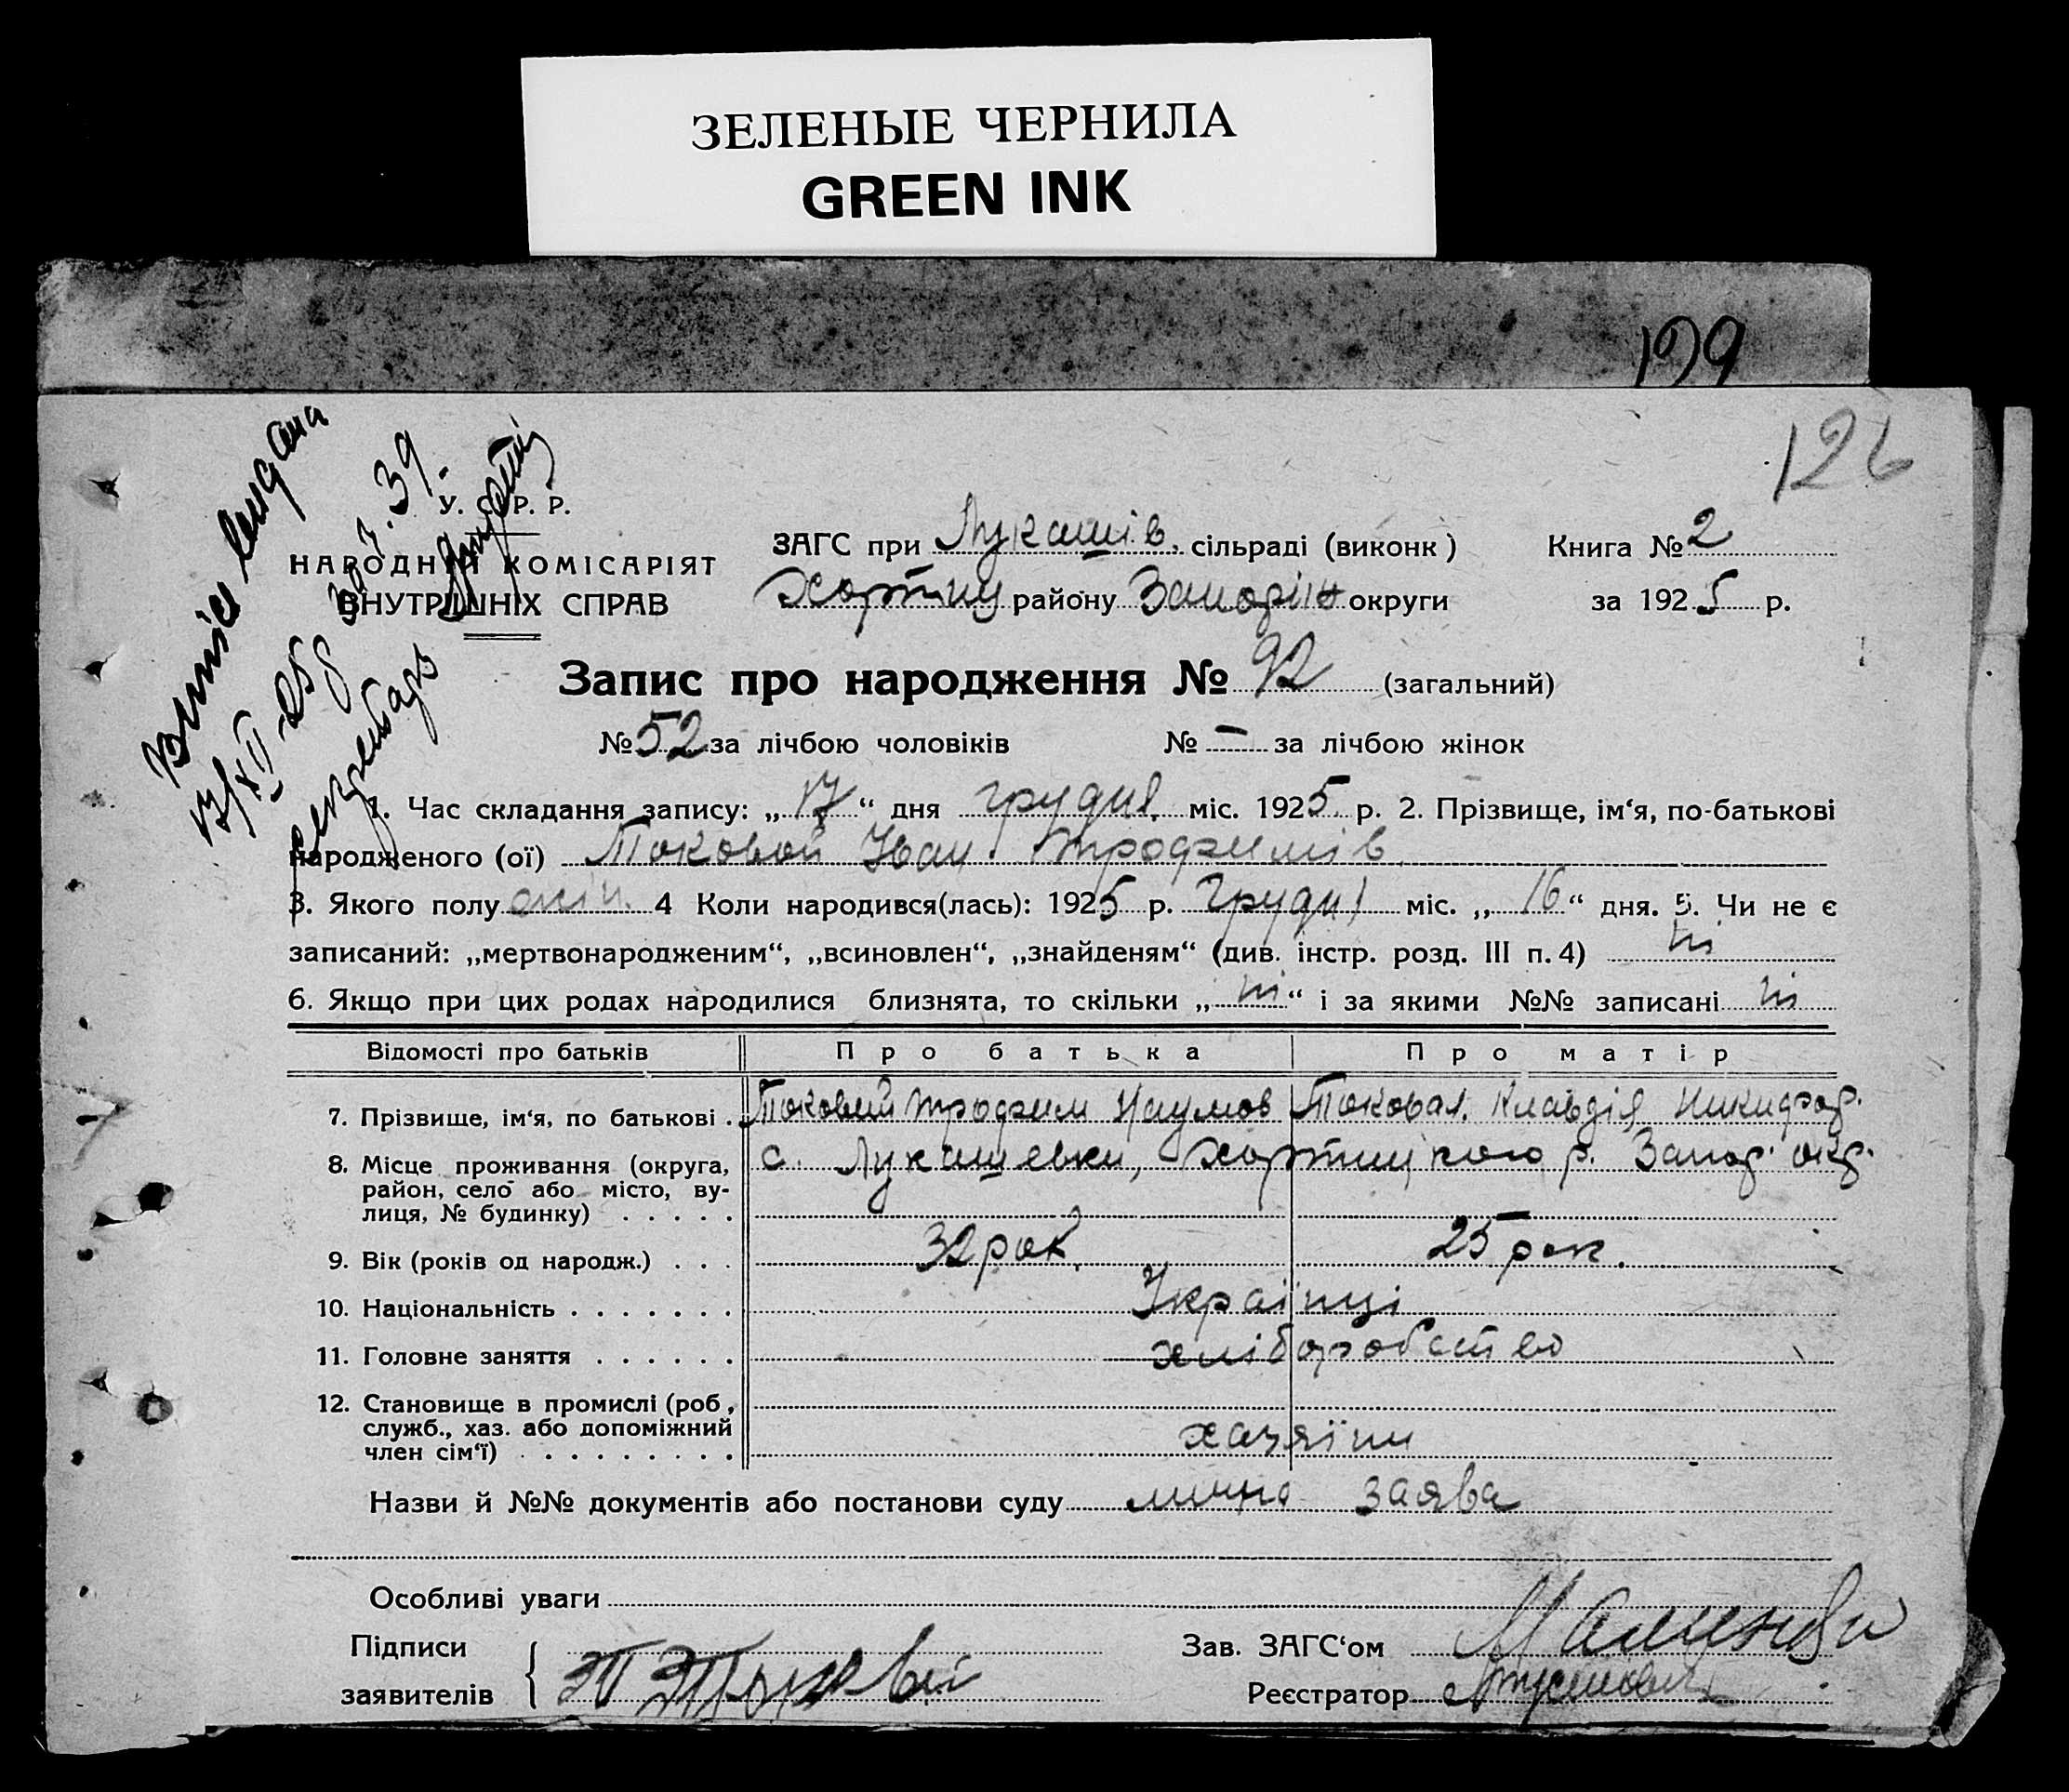 ЗЕЛЕНЫЕ ЧЕРНИЛА
GREEN INK
199
126
Випис видана
17/XII-25 р. № 739.
секретарь
У. С. Р. Р.
НАРОДНІЙ КОМІСАРІЯТ
ВНУТРІШНІХ СПРАВ
ЗАГС при Лукашів. сільраді (виконк)
Хортиц району Запоріж округи
Книга № 2
за 1925 р.
Запис про народження № 92 (загальний)
№ 52 за лічбою чоловіків № – за лічбою жінок
1. Час складання запису: „17“ дня грудня. міс. 1925 р. 2. Прізвище, ім‘я, по-батькові
народженого (ої) Токовой Іван Трофимів.
3. Якого полу 4 Коли народився(лась): 1925 р. Грудн міс. „16“ дня. 5. Чи не є
записаний: „мертвонародженим“, „всиновлен“, „знайденям“ (див. інстр. розд. III п. 4) ні
6. Якщо при цих родах народилися близнята, то скільки „ні“ і за якими №№ записані ні
Відомості про батьків Про батька Про матір
7. Прізвище, ім‘я, по батькові . Токовий Трофим Наумов Токовая. Клавдія Никифор.
8. Місце проживання (округа, с. Лукашевки, Хортицкого р. Запор. окр.
район, село або місто, ву-
лиця, № будинку) . . . . .
9. Вік (років од народж.) . . . 32 рок. 25 рок.
10. Національність . . . . . . . Українці
11. Головне заняття . . . . . . хліборобство
12. Становище в промислі (роб,
служб., хаз. або допоміжний
член сім‘ї) . . . . . . . . . хазяїни
Назви й №№ документів або постанови суду лична заява
Особливі уваги
Підписи
заявителів
Зав. ЗАГС‘ом
Реєстратор